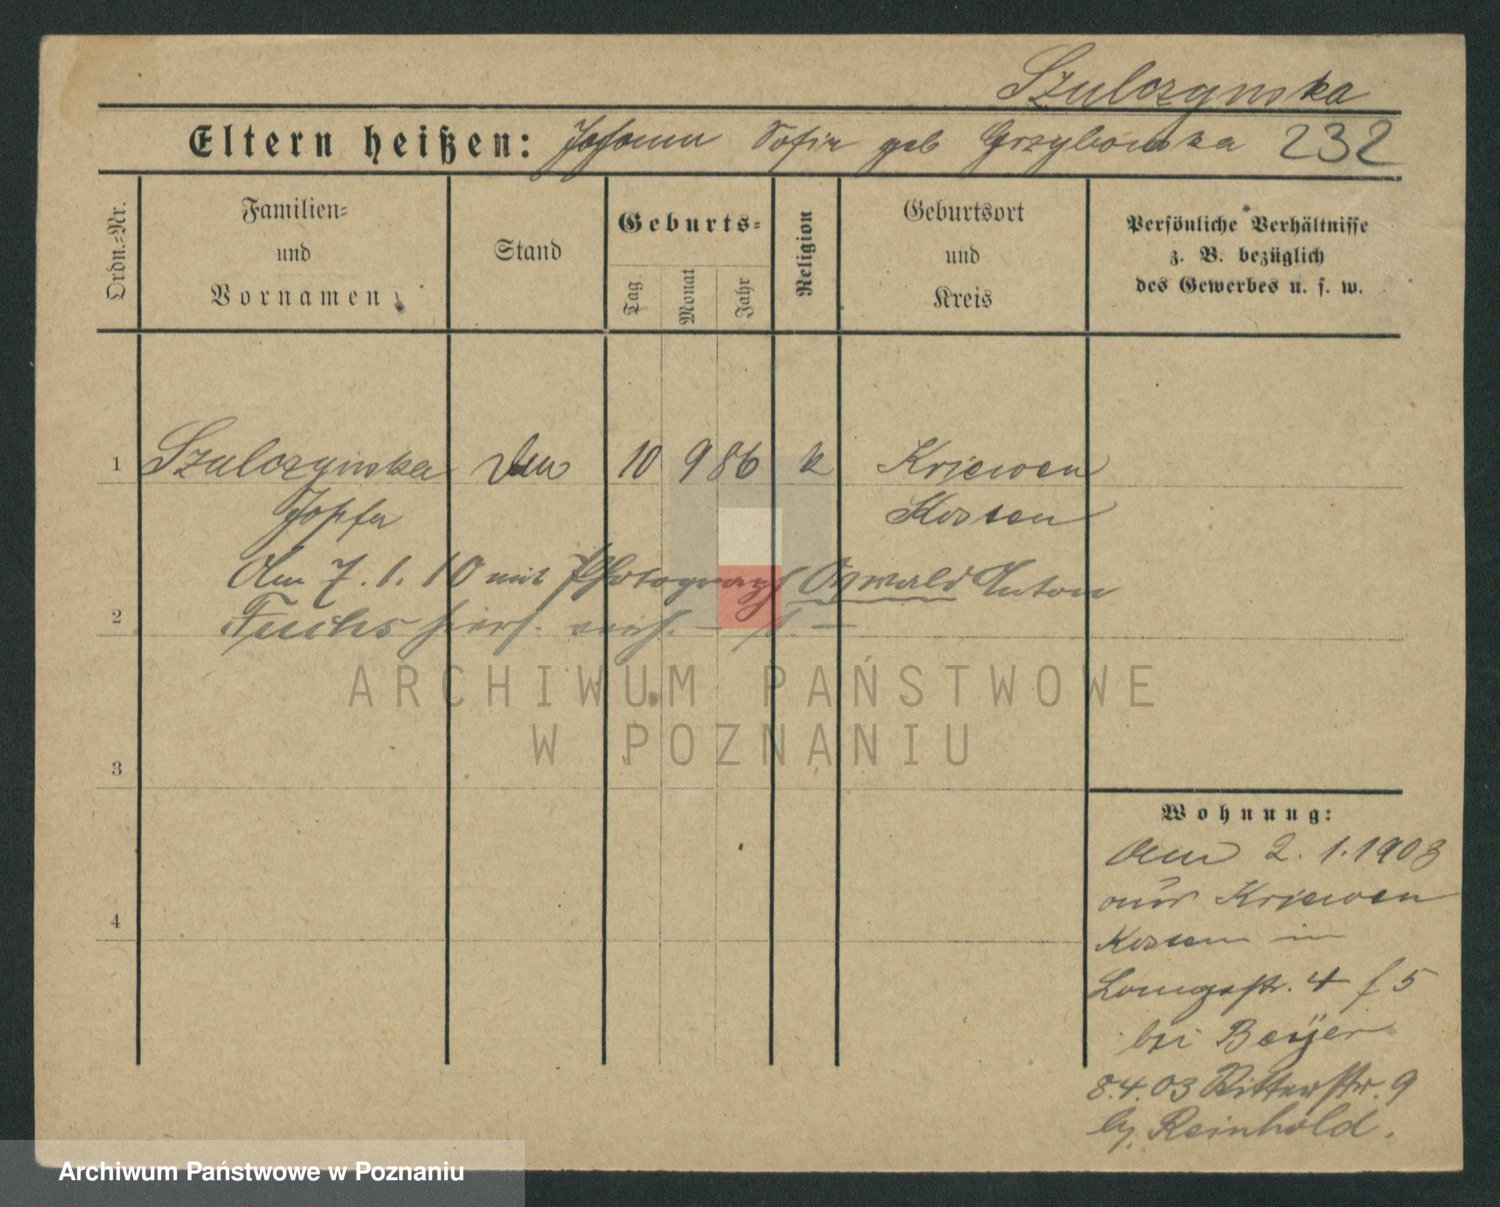 Szulczynska
Eltern heißen: Johann Sofie geb Grzybowska 232
Ordn.=Nr.
Familien=
und
Vornamen
Stand
Geburts=
Tag
Monat
Jahr
Religion
Geburtsort
und
Kreis
Persönliche Verhältnisse
z. B. bezüglich
des Gewerbes u. s. w.
1 Szulczynska 10 9 86 k Kriewen
Kosten
Am 7. 1. 10 mit Photograph Oswald Anton
2 Fuchs hiers. verh.
ARCHIWUM PAŃSTWOWE
W POZNANIU
3
4
Wohnung:
Am 2. 1. 1903
aus Kriewen
Kosten in
Langestr. 4 f 5
bei Beÿer
8.4.03 Ritterstr. 9
Reinhold.
Archiwum Państwowe w Poznaniu